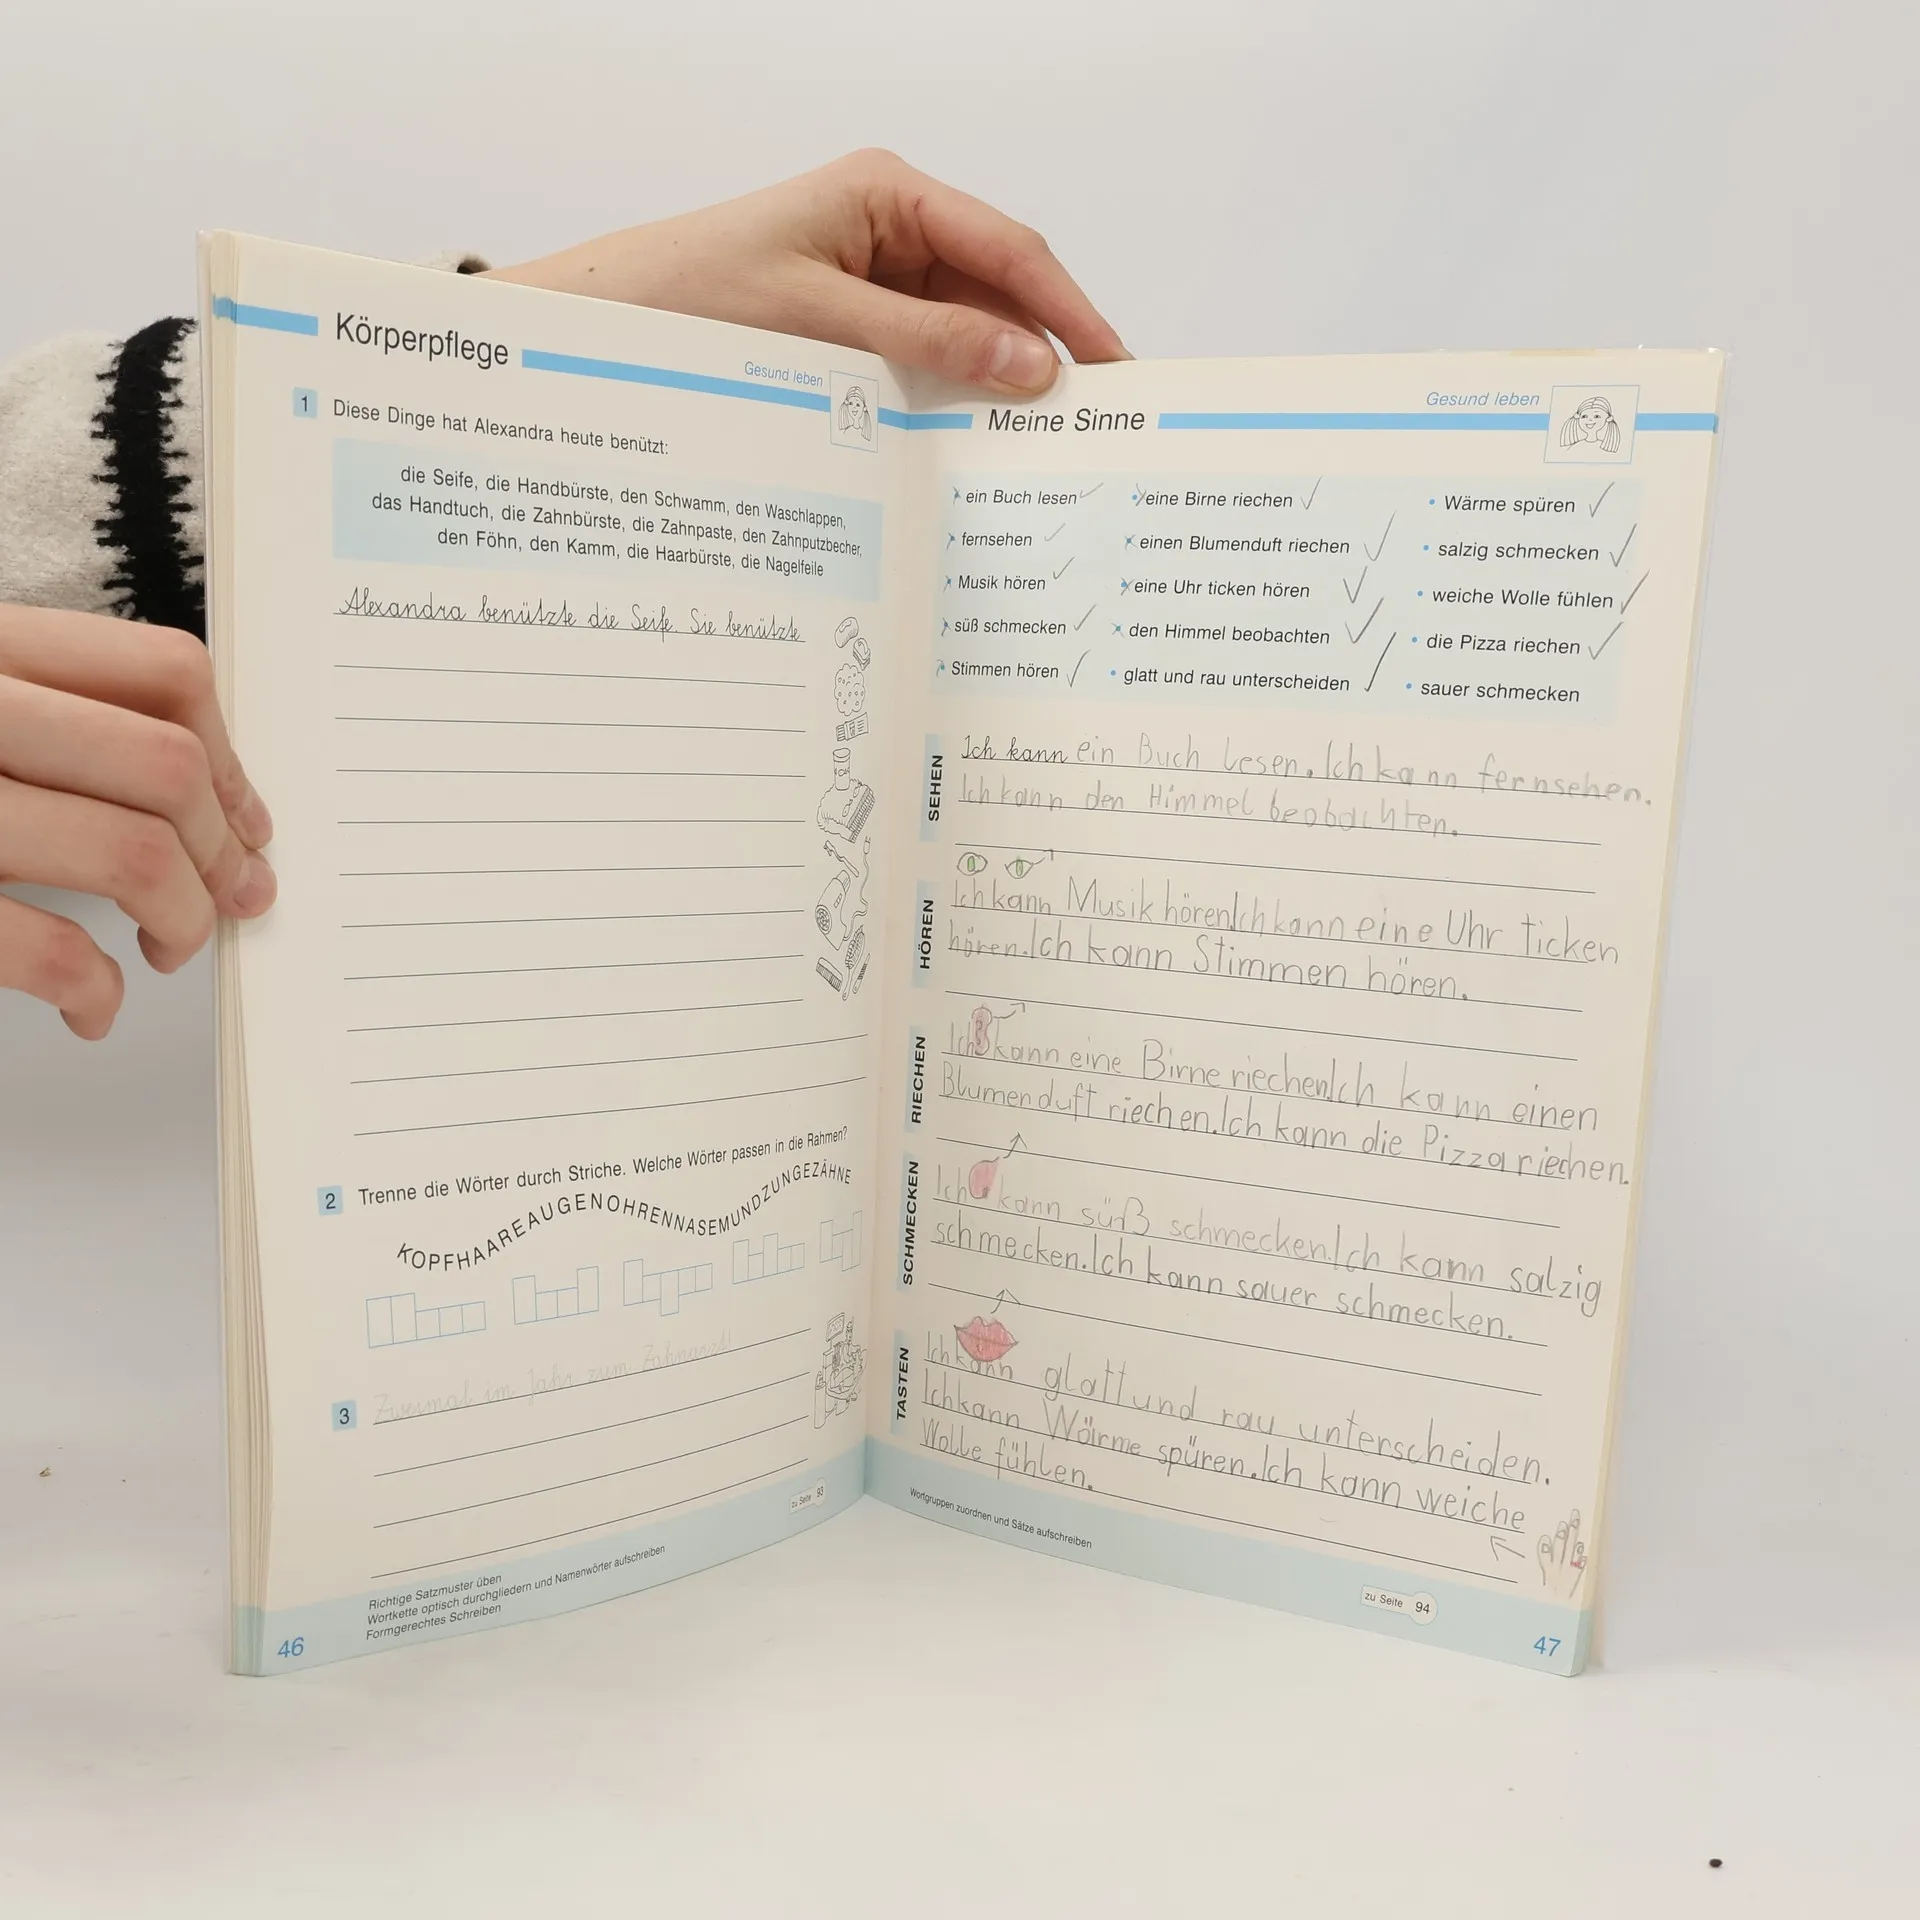 Körperpflege
Gesund leben
1 Diese Dinge hat Alexandra heute benützt:
die Seife, die Handbürste, den Schwamm, den Waschlappen,
das Handtuch, die Zahnbürste, die Zahnpaste, den Zahnputzbecher,
den Föhn, den Kamm, die Haarbürste, die Nagelfeile
Alexandra benützte die Seife. Sie benützte
2 Trenne die Wörter durch Striche. Welche Wörter passen in die Rahmen?
KOPFHAAREAUGENOHRENNASEMUNDZUNGEZÄHNE
3 Zweimal im Jahr zum Zahnarzt!
zu Seite 93
Richtige Satzmuster üben
Wortkette optisch durchgliedern und Namenwörter aufschreiben
Formgerechtes Schreiben
46
Meine Sinne
Gesund leben
ein Buch lesen
fernsehen
Musik hören
süß schmecken
Stimmen hören
eine Birne riechen
einen Blumenduft riechen
eine Uhr ticken hören
den Himmel beobachten
• glatt und rau unterscheiden
• Wärme spüren
• salzig schmecken
• weiche Wolle fühlen
• die Pizza riechen
• sauer schmecken
SEHEN
Ich kann ein Buch lesen. Ich kann fernsehen.
Ich kann den Himmel beobachten.
HÖREN
Ich kann Musik hören. Ich kann eine Uhr ticken
hören. Ich kann Stimmen hören.
RIECHEN
Ich kann eine Birne riechen. Ich kann einen
Blumenduft riechen. Ich kann die Pizza riechen.
SCHMECKEN
Ich kann süß schmecken. Ich kann salzig
schmecken. Ich kann sauer schmecken.
TASTEN
Ich kann glatt und rau unterscheiden.
Ich kann Wärme spüren. Ich kann weiche
Wolle fühlen.
Wortgruppen zuordnen und Sätze aufschreiben
zu Seite 94
47